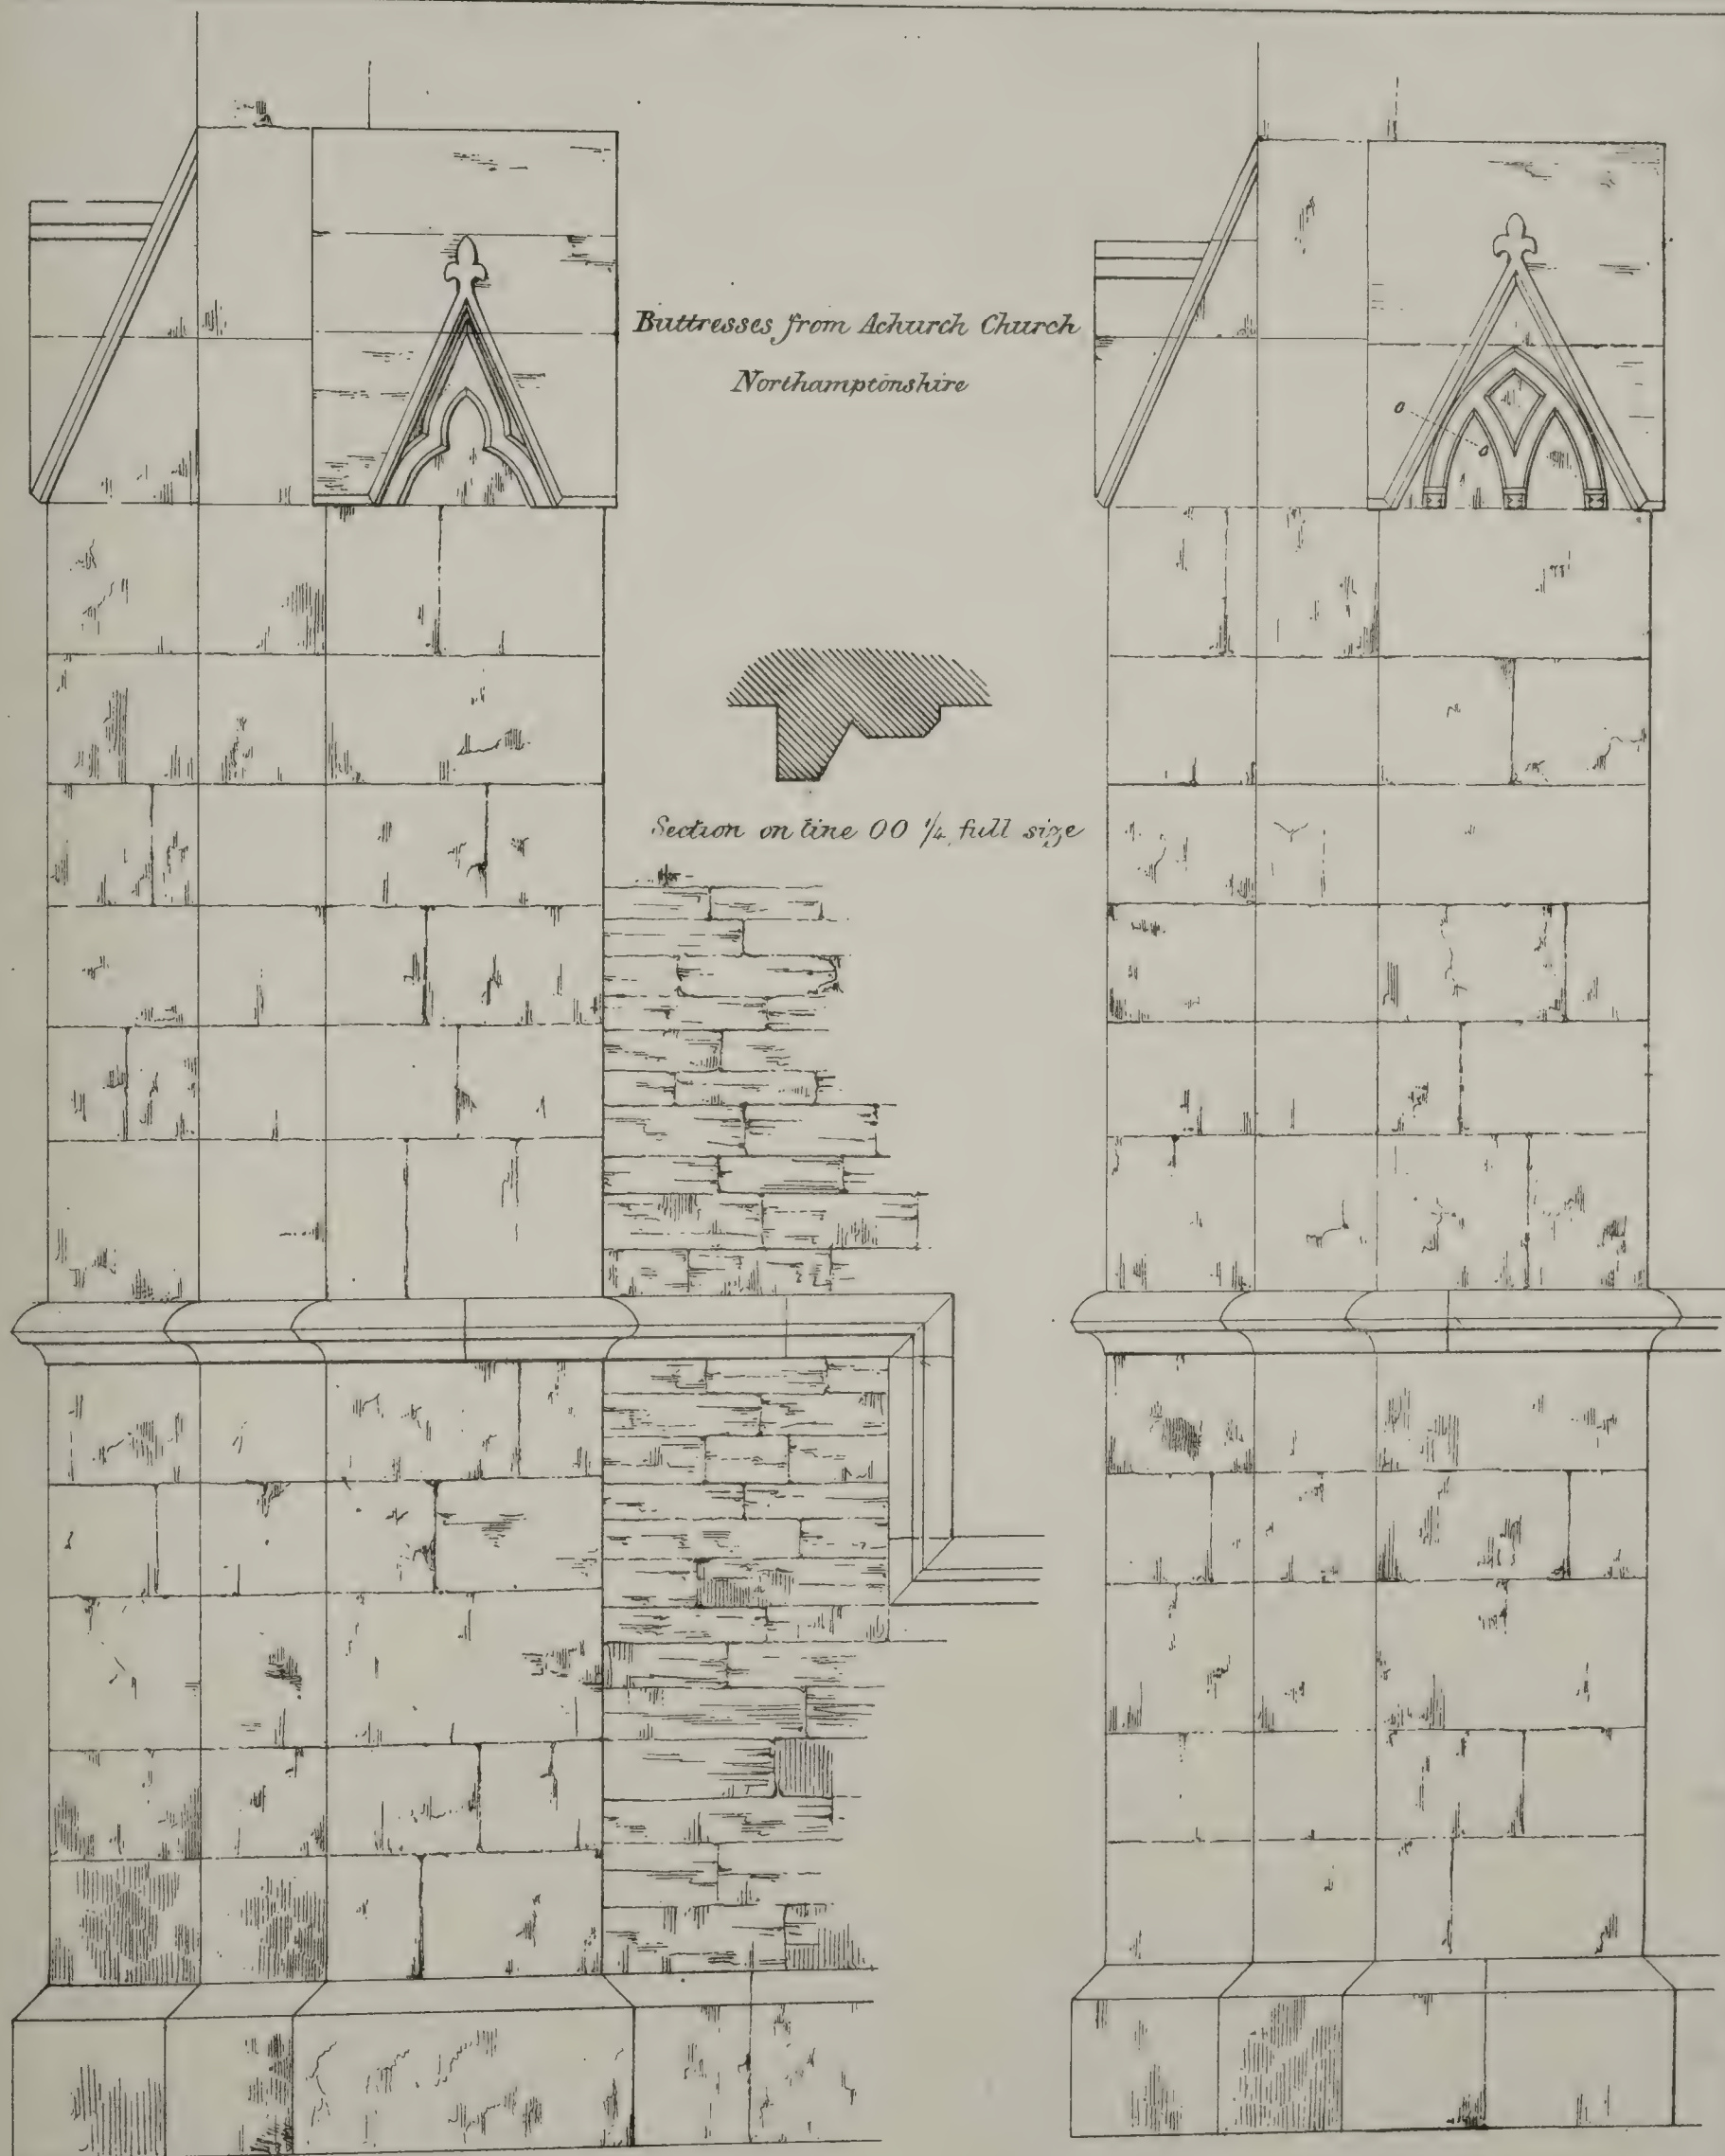 Buttresses from Achurch Church
Northamptonshire
o
o
Section on line OO 1/4 full size